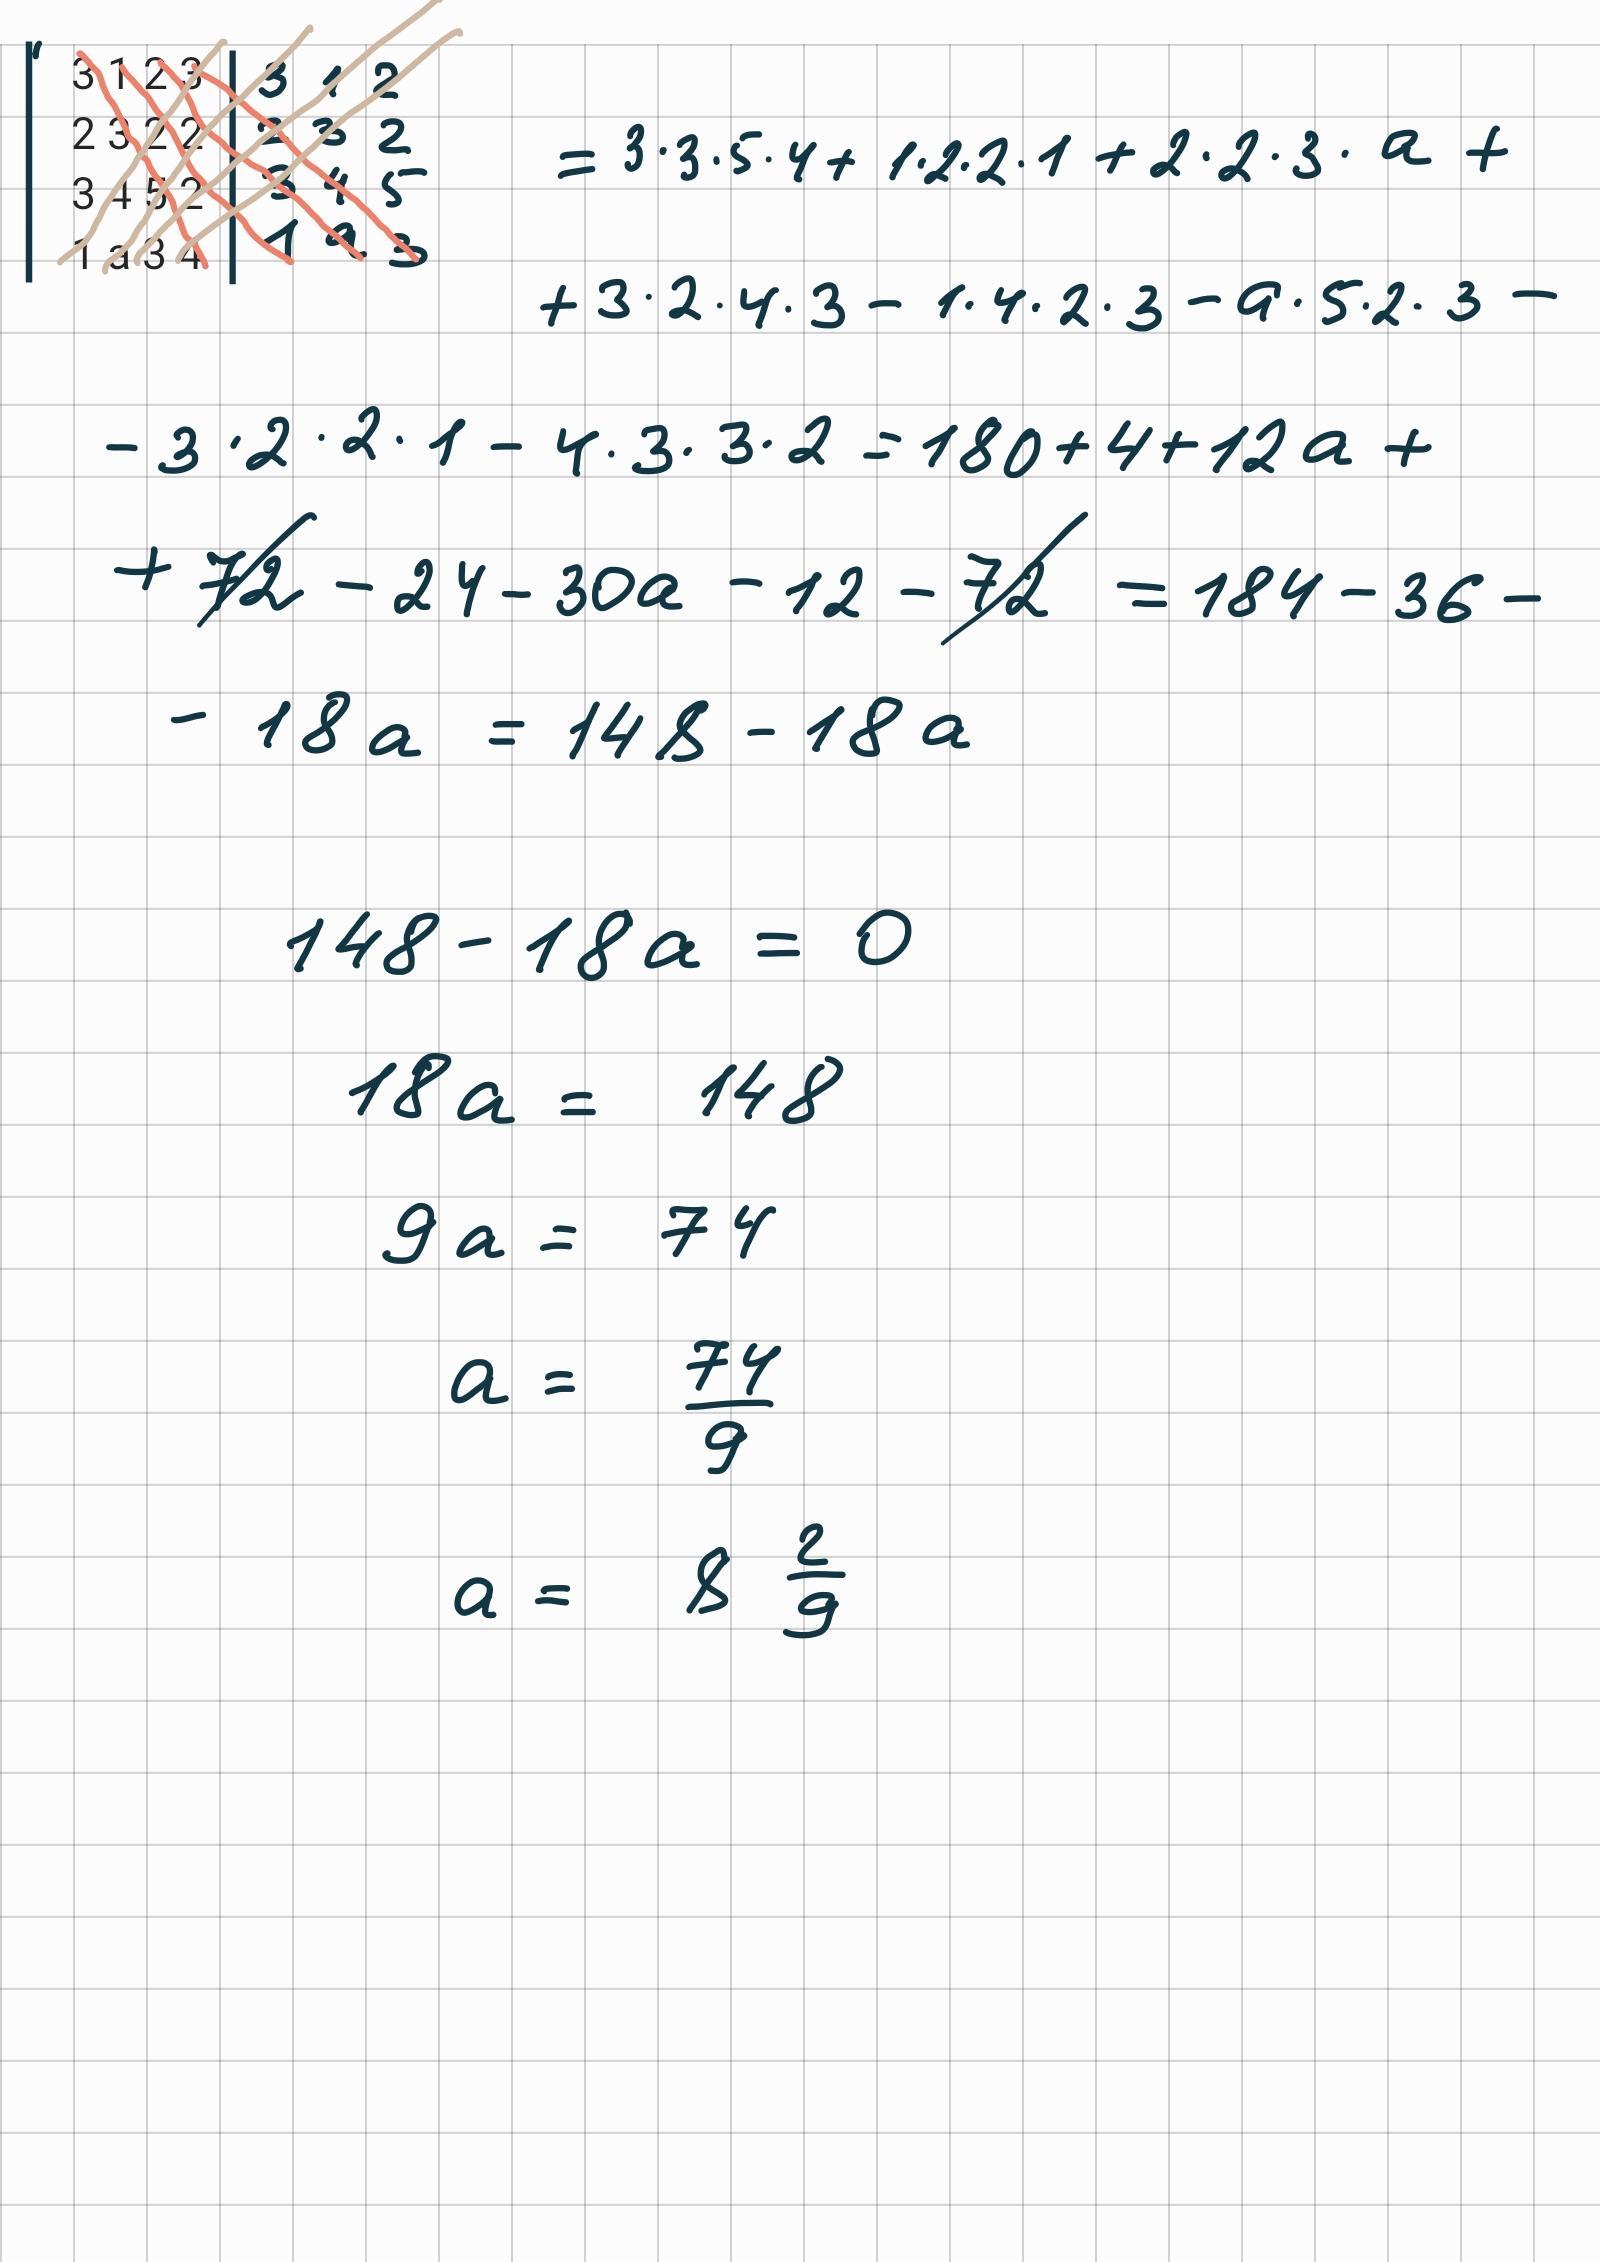 3 1 2 3 | 3 1 2
2 3 2 2 | 2 3 2
3 4 5 2 | 3 4 5
1 a 3 4 | 1 a 3
= 3·3·5·4 + 1·2·2·1 + 2·2·3·a +
+ 3·2·4·3 - 1·4·2·3 - a·5·2·3 -
- 3·2·2·1 - 4·3·3·2 = 180 + 4 + 12a +
+ 72 - 24 - 30a - 12 - 72 = 184 - 36 -
- 18a = 148 - 18a
148 - 18a = 0
18a = 148
9a = 74
a = 74/9
a = 8 2/9